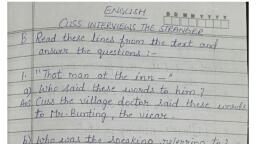 ENGLISH
D D M M Y Y Y Y
CUSS INTERVIEWS THE STRANGER
B Read these lines from the text and
answer the questions :-
1. "That man at the inn —"
a) Who said these words to him ?
Ans) Cuss the village doctor said these words
to Mr. Bunting, the vicar.
b) Who was the speaking referring to ?